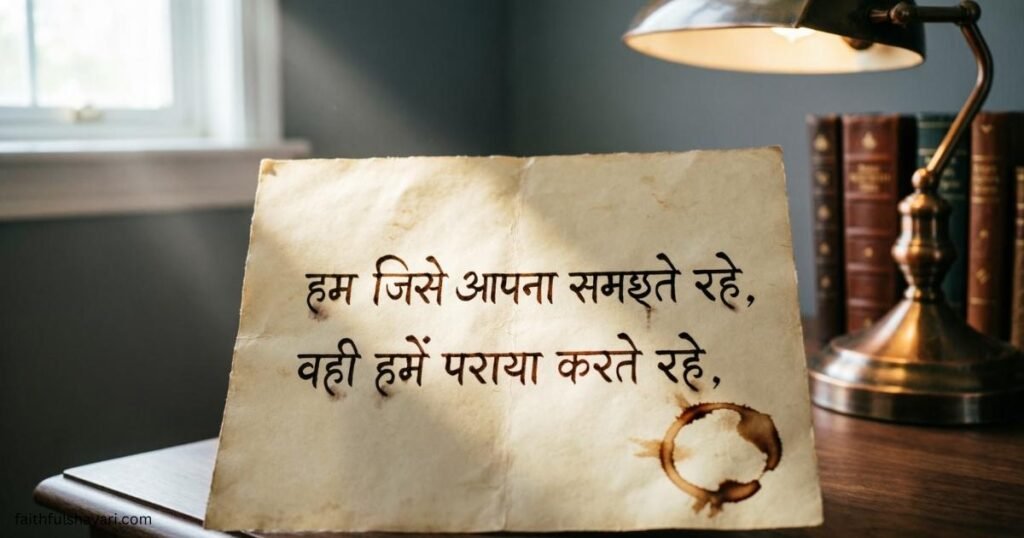 हम जिसे आपना समझते रहे,
वही हमें पराया करते रहे,
faithfulshayari.com